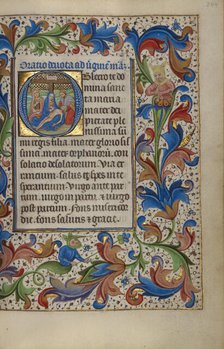 Oratio devota ad v̄ginē mariā
Obsecro te do
mina sancta
maria mater
dei pietate ple
nissima sum
mi regis filia. mater glorio sis
sima. mater orphanorum. con
solatio desolatorum. Via er
rantium. salus et spes in te
sperantium. Virgo ante par
tum. virgo in partu. et virgo
post partum. Fons misericor
die. fons salutis et gracie.